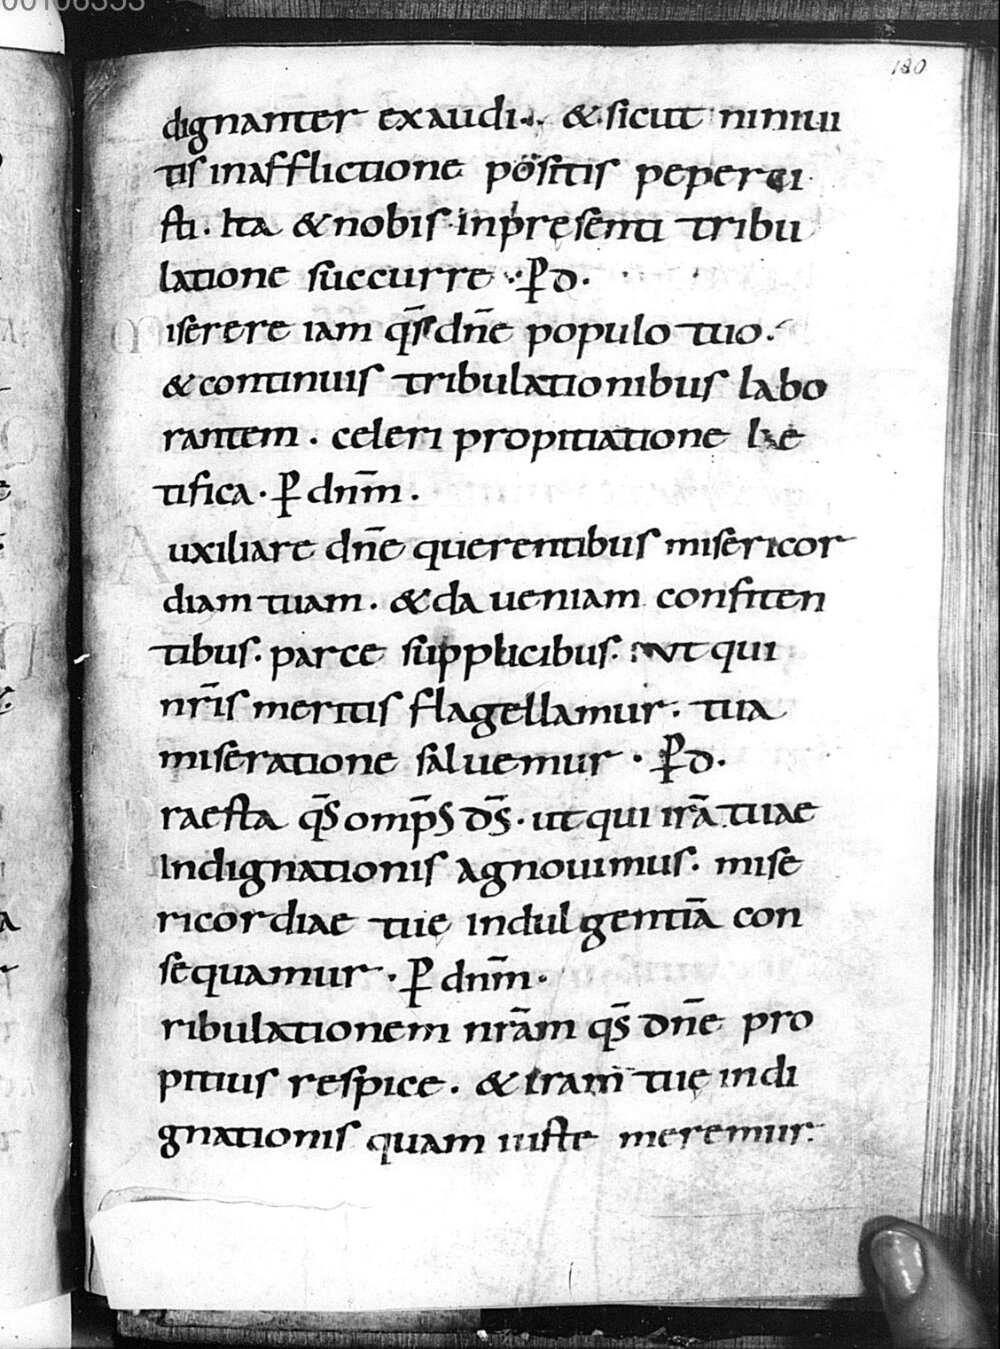 00106353
180
dignanter exaudi. & sicut niniui
tis inafflictione positis peperci
sti. Ita & nobis inpresenti tribu
latione succurre. P̄ d.
Miserere iam q̄s dn̄e populo tuo.
& continuis tribulationibus labo
rantem. celeri propitiatione lae
tifica. P̄ dnm̄.
Auxiliare dn̄e querentibus misericor
diam tuam. & da ueniam confiten
tibus. parce supplicibus. ut qui
nr̄is meritis flagellamur. tua
miseratione saluemur. P̄ d.
raesta q̄s omp̄s d̄s. ut qui irā tuae
Indignationis agnouimus. mise
ricordiae tuę indulgentiā con
sequamur. P̄ dnm̄.
ribulationem nr̄am q̄s dn̄e pro
pitius respice. & iram tuę indi
gnationis quam iuste meremur.